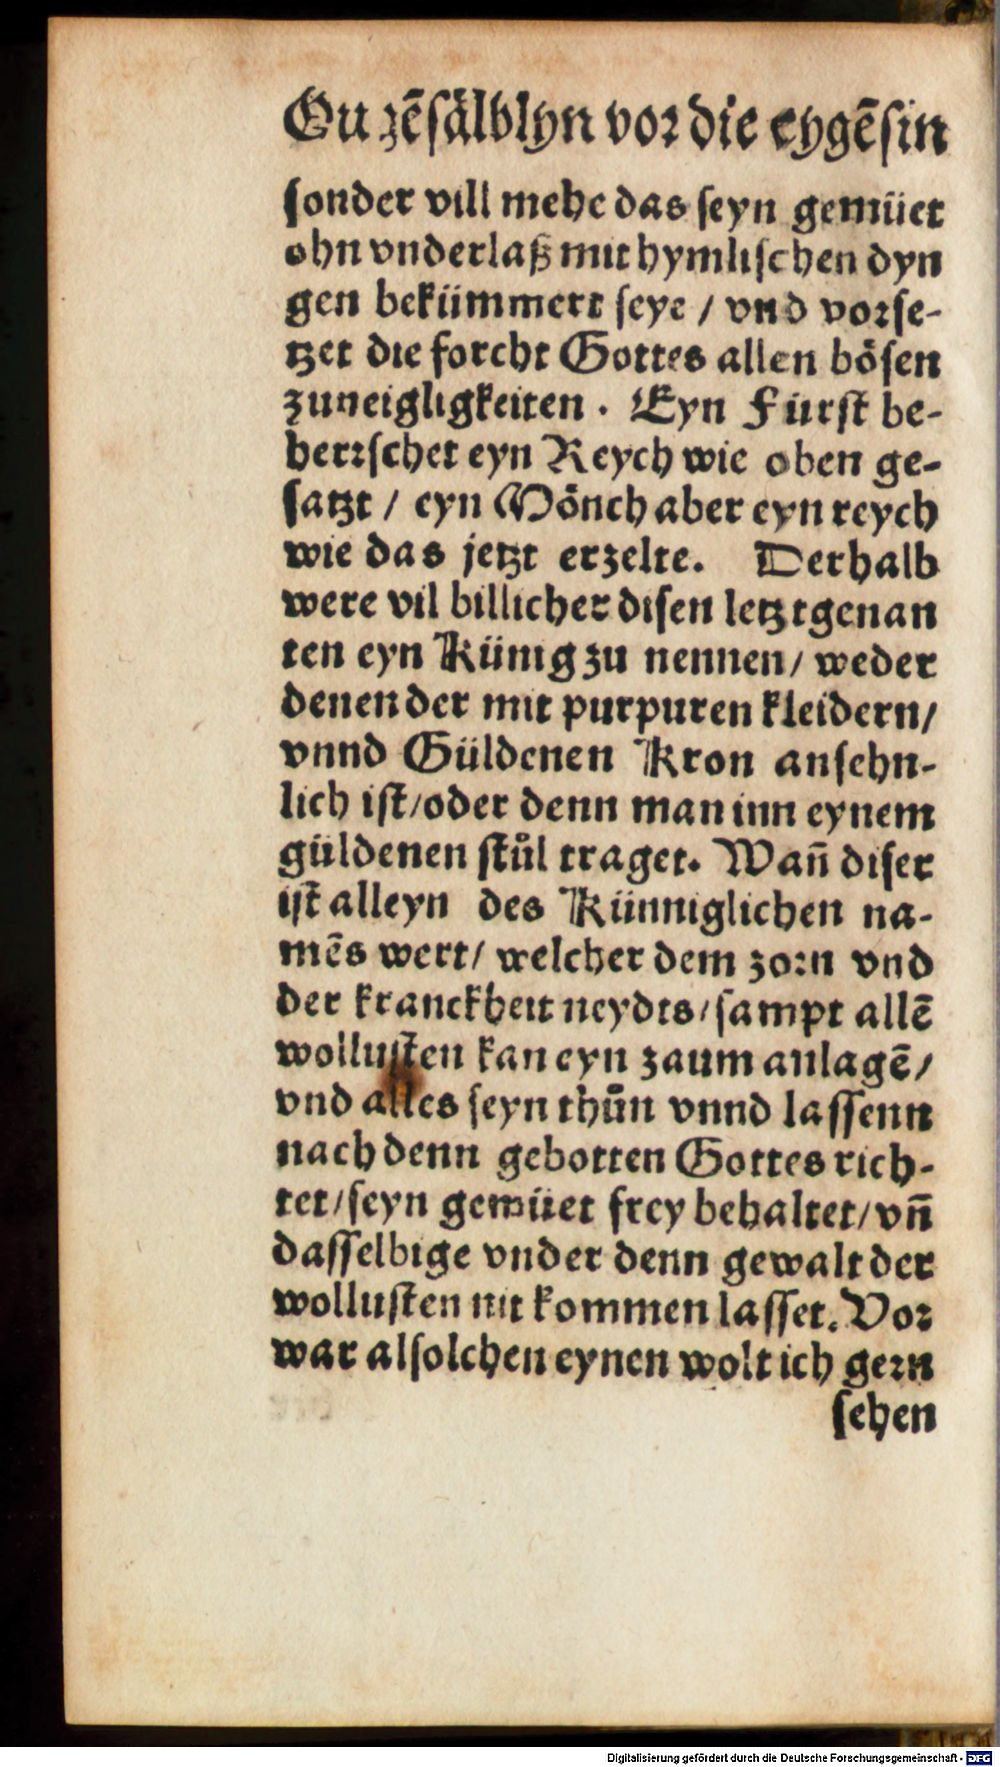 Gu zẽsälblyn vor die eygẽsin
sonder vill mehe das seyn gemüet
ohn vnderlaß mit hymlischen dyn
gen bekümmert seye / vnd vorse-
tzet die forcht Gottes allen bösen
zuneigligkeiten. Eyn Fürst be-
herrschet eyn Reych wie oben ge-
satzt / eyn Mönch aber eyn reych
wie das jetzt erzelte. Derhalb
were vil billicher disen letztgenan
ten eyn Künig zu nennen / weder
denen der mit purpuren kleidern /
vnnd Güldenen Kron ansehn-
lich ist / oder denn man inn eynem
güldenen stůl traget. Wañ diser
ist alleyn des Künniglichen na-
mẽs wert / welcher dem zorn vnd
der kranckheit neydts / sampt allẽ
wollusten kan eyn zaum anlagẽ /
vnd alles seyn thůn vnnd lassenn
nach denn gebotten Gottes rich-
tet / seyn gemüet frey behaltet / vñ
dasselbige vnder denn gewalt der
wollusten nit kommen lasset. Vor
war alsolchen eynen wolt ich gern
sehen
Digitalisierung gefördert durch die Deutsche Forschungsgemeinschaft - DFG